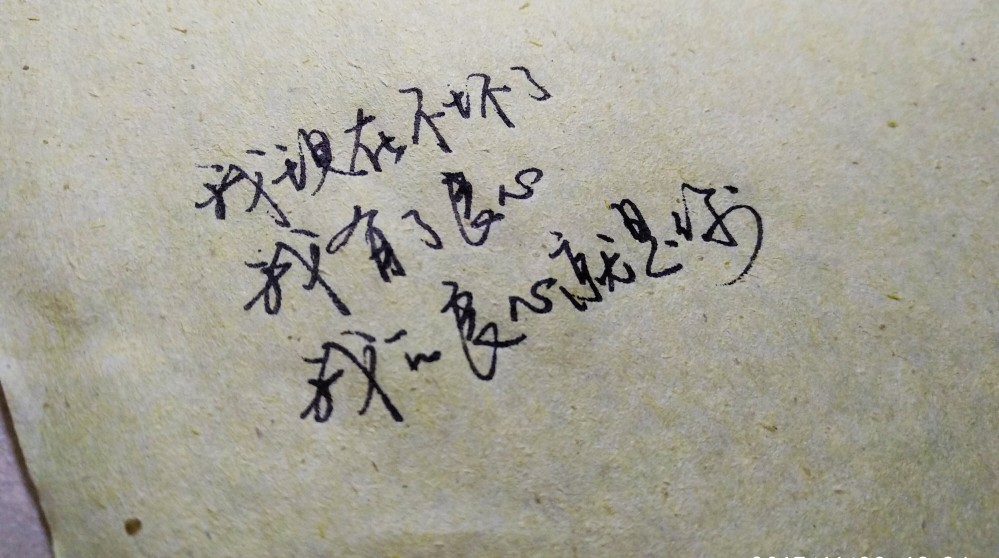 我现在不坏了
我有了良心
我的良心就是你